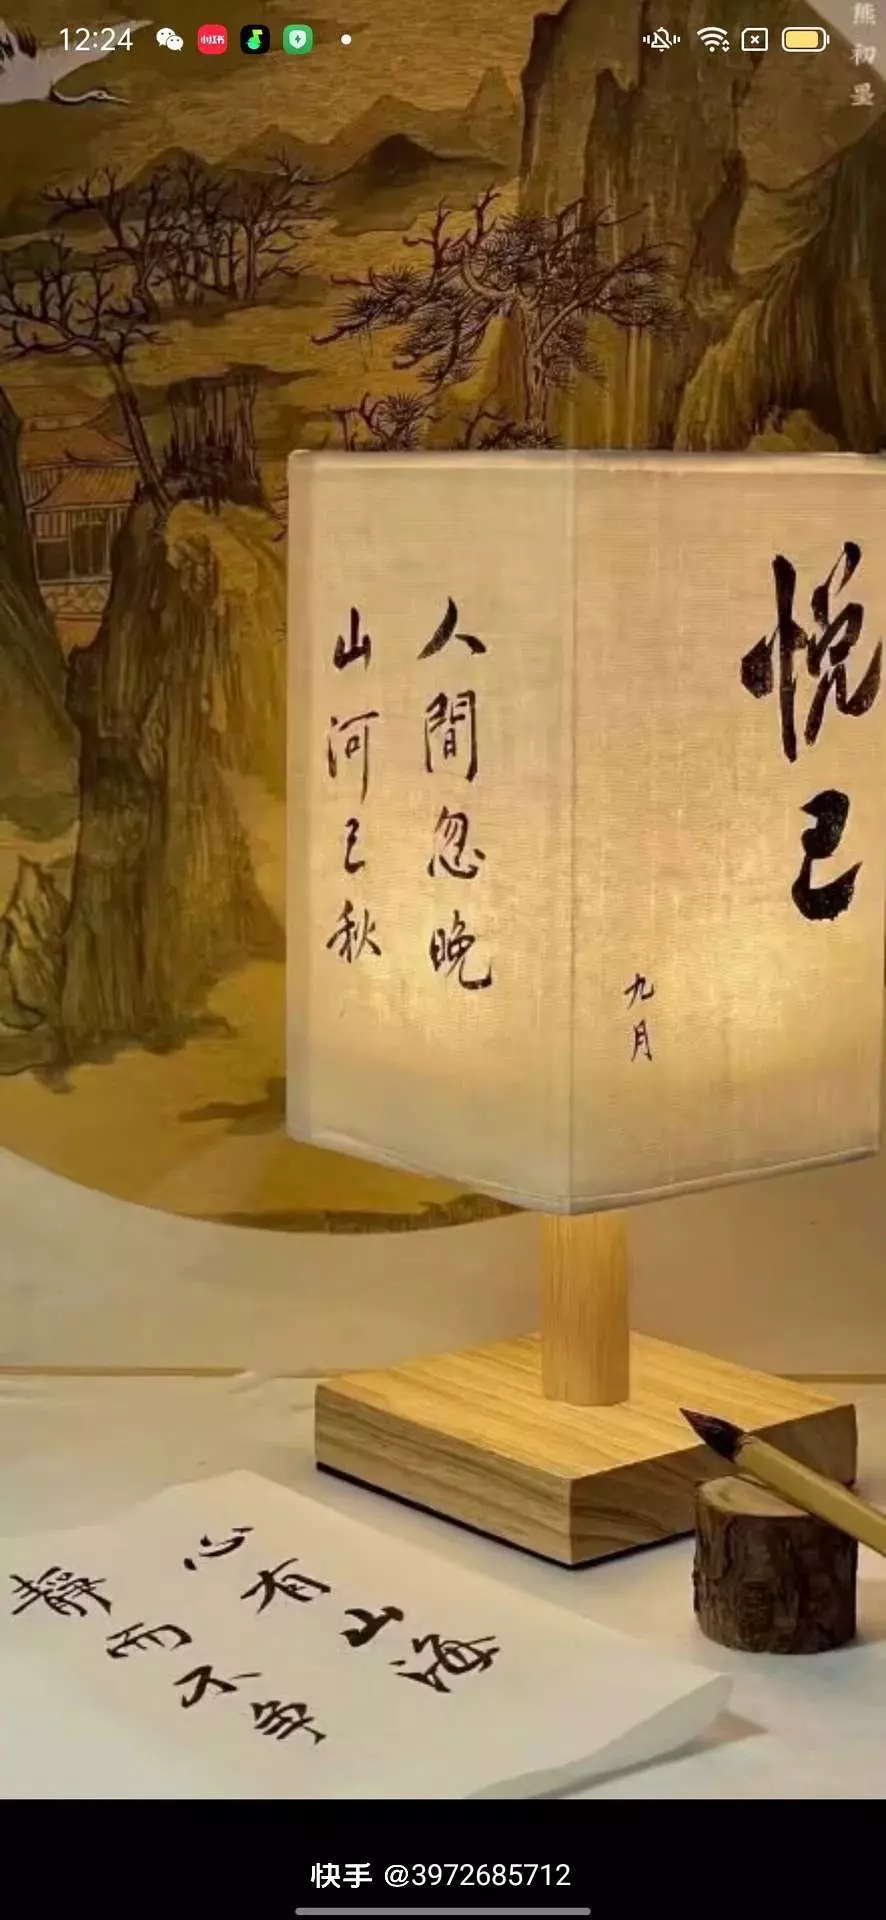 12:24
小红书
熊初墨
悦己
九月
人間忽晚
山河已秋
心有山海
靜而不争
快手 @3972685712